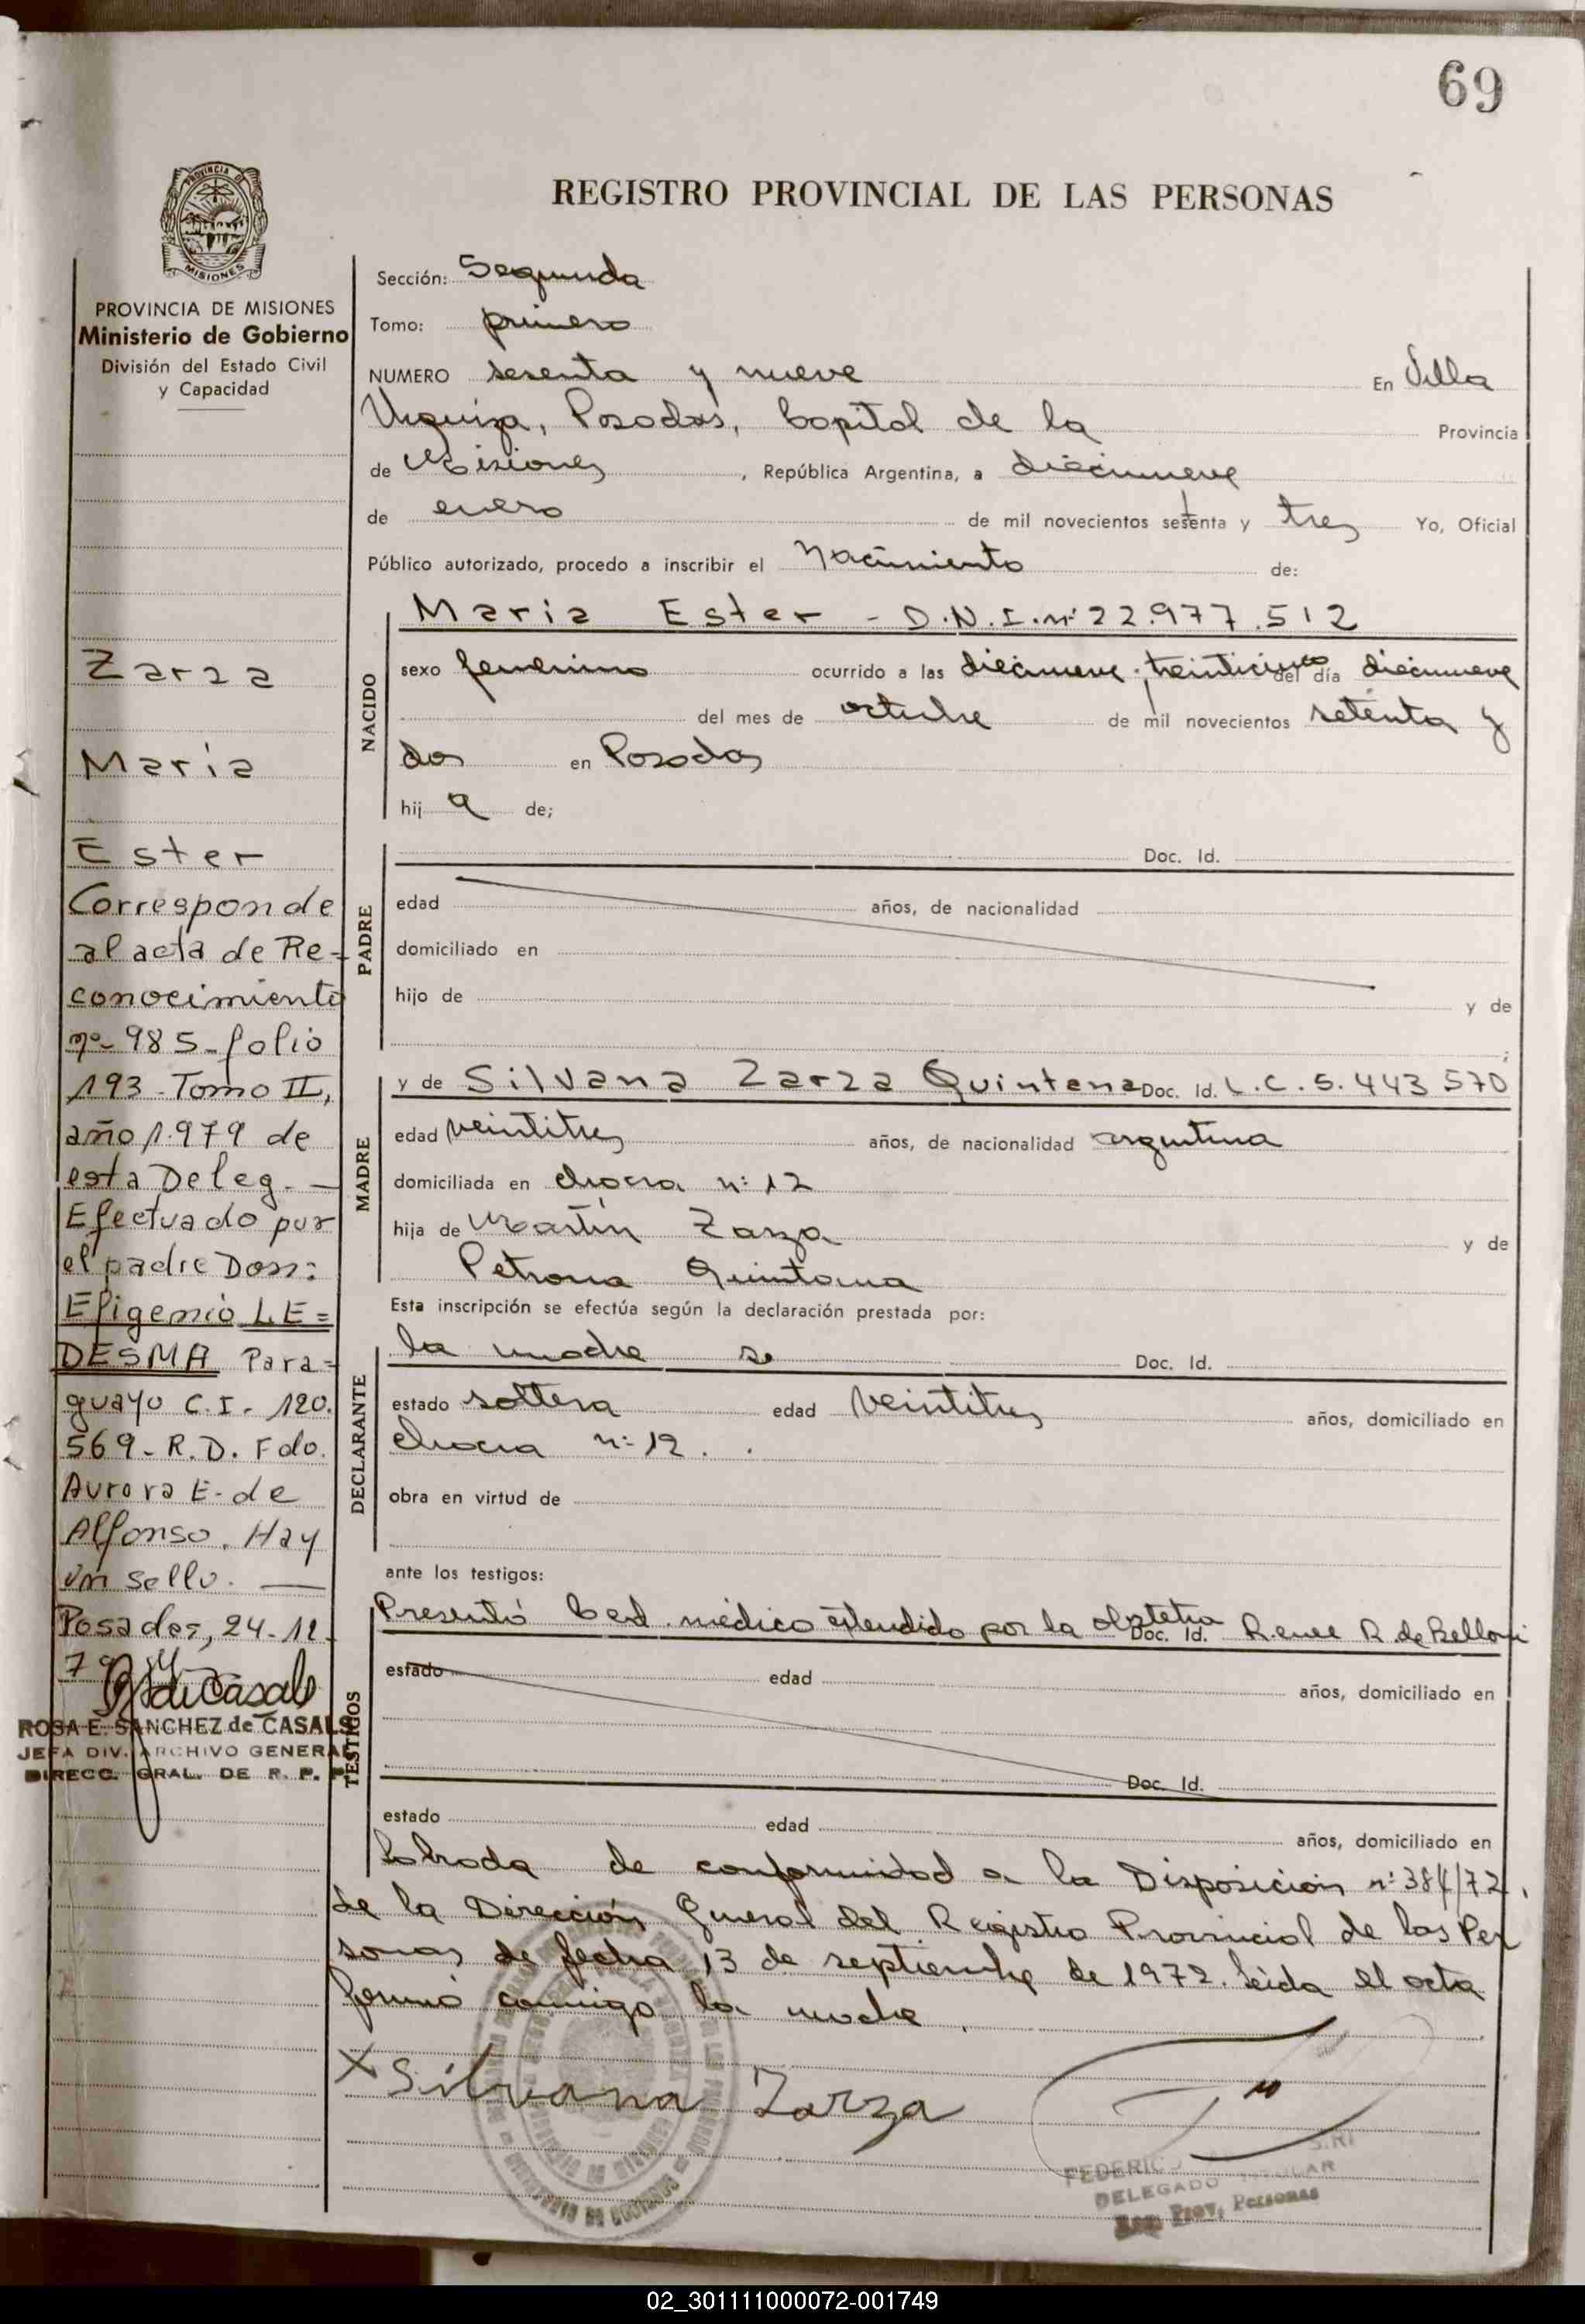 69
PROVINCIA DE
MISIONES
REGISTRO PROVINCIAL DE LAS PERSONAS
PROVINCIA DE MISIONES
Ministerio de Gobierno
División del Estado Civil
y Capacidad
Zarza
Maria
Ester
Corresponde
al acta de Re-
conocimiento
nº 985 - folio
193 - Tomo II,
año 1.979 de
esta Deleg. —
Efectuado por
el padre Don:
Efigenio LE=
DESMA Para=
guayo C.I. 120.
569 - R.D. Fdo.
Aurora E. de
Alfonso. Hay
un sello. —
Posadas, 24-12-
79
ROSA E. SANCHEZ de CASALS
JEFA DIV. ARCHIVO GENERAL
DIRECC. GRAL. DE R. P. P.
Sección: Segunda
Tomo: primero
NUMERO sesenta y nueve En Villa
Urquiza, Posadas, Capital de la Provincia
de Misiones, República Argentina, a diecinueve
de enero de mil novecientos setenta y tres Yo, Oficial
Público autorizado, procedo a inscribir el Nacimiento de:
NACIDO
Maria Ester - D.N.I. nº 22.977.512
sexo femenino ocurrido a las diecinueve treinticinco del día diecinueve
del mes de octubre de mil novecientos setenta y
dos en Posadas
hij a de;
PADRE
Doc. Id.
edad años, de nacionalidad
domiciliado en
hijo de y de
;
MADRE
y de Silvana Zarza Quintana Doc. Id. L.C. 5.443 570
edad veintitres años, de nacionalidad argentina
domiciliada en chacra nº 12
hija de Martín Zarza y de
Petrona Quintana
Esta inscripción se efectúa según la declaración prestada por:
DECLARANTE
la madre Doc. Id.
estado soltera edad veintitres años, domiciliado en
chacra nº 12.
obra en virtud de
ante los testigos:
TESTIGOS
Presentó Cert. médico extendido por la obstetra Doc. Id. Renee R. de Belloni
estado edad años, domiciliado en
Doc. Id.
estado edad años, domiciliado en
Labrada de conformidad a la Disposición nº 384/72,
de la Dirección General del Registro Provincial de las Per
sonas de fecha 13 de septiembre de 1972. Leida el acta
firmó conmigo la madre.
X Silvana Zarza
FEDERICO
DELEGADO TITULAR
Reg. Prov. Personas
02_301111000072-001749